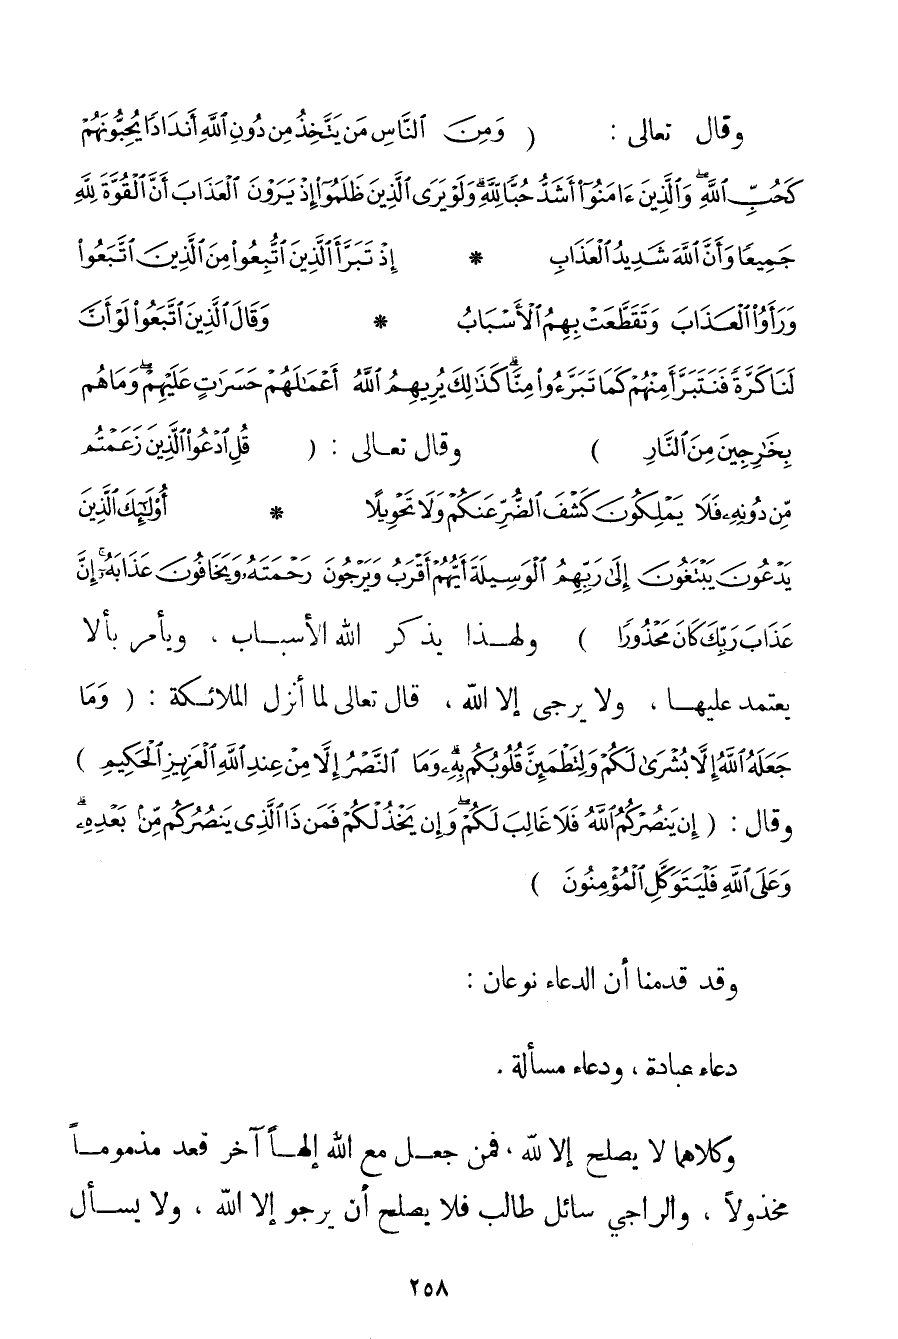 وقال تعالى : ( وَمِنَ ٱلنَّاسِ مَن يَتَّخِذُ مِن دُونِ ٱللَّهِ أَندَادًا يُحِبُّونَهُمْ
كَحُبِّ ٱللَّهِ ۖ وَٱلَّذِينَ ءَامَنُوٓا۟ أَشَدُّ حُبًّا لِّلَّهِ ۗ وَلَوْ يَرَى ٱلَّذِينَ ظَلَمُوٓا۟ إِذْ يَرَوْنَ ٱلْعَذَابَ أَنَّ ٱلْقُوَّةَ لِلَّهِ
جَمِيعًا وَأَنَّ ٱللَّهَ شَدِيدُ ٱلْعَذَابِ * إِذْ تَبَرَّأَ ٱلَّذِينَ ٱتُّبِعُوا۟ مِنَ ٱلَّذِينَ ٱتَّبَعُوا۟
وَرَأَوُا۟ ٱلْعَذَابَ وَتَقَطَّعَتْ بِهِمُ ٱلْأَسْبَابُ * وَقَالَ ٱلَّذِينَ ٱتَّبَعُوا۟ لَوْ أَنَّ
لَنَا كَرَّةً فَنَتَبَرَّأَ مِنْهُمْ كَمَا تَبَرَّءُوا۟ مِنَّا ۗ كَذَٰلِكَ يُرِيهِمُ ٱللَّهُ أَعْمَٰلَهُمْ حَسَرَٰتٍ عَلَيْهِمْ ۖ وَمَا هُم
بِخَٰرِجِينَ مِنَ ٱلنَّارِ ) وقال تعالى : ( قُلِ ٱدْعُوا۟ ٱلَّذِينَ زَعَمْتُم
مِّن دُونِهِۦ فَلَا يَمْلِكُونَ كَشْفَ ٱلضُّرِّ عَنكُمْ وَلَا تَحْوِيلًا * أُو۟لَٰٓئِكَ ٱلَّذِينَ
يَدْعُونَ يَبْتَغُونَ إِلَىٰ رَبِّهِمُ ٱلْوَسِيلَةَ أَيُّهُمْ أَقْرَبُ وَيَرْجُونَ رَحْمَتَهُۥ وَيَخَافُونَ عَذَابَهُۥٓ ۚ إِنَّ
عَذَابَ رَبِّكَ كَانَ مَحْذُورًا ) ولهذا يذكر الله الأسباب ، ويأمر بألا
يعتمد عليها ، ولا يرجى إلا الله ، قال تعالى لما أنزل الملائكة : ( وَمَا
جَعَلَهُ ٱللَّهُ إِلَّا بُشْرَىٰ لَكُمْ وَلِتَطْمَئِنَّ قُلُوبُكُم بِهِۦ ۗ وَمَا ٱلنَّصْرُ إِلَّا مِنْ عِندِ ٱللَّهِ ٱلْعَزِيزِ ٱلْحَكِيمِ )
وقال : ( إِن يَنصُرْكُمُ ٱللَّهُ فَلَا غَالِبَ لَكُمْ ۖ وَإِن يَخْذُلْكُمْ فَمَن ذَا ٱلَّذِى يَنصُرُكُم مِّنۢ بَعْدِهِۦ ۗ
وَعَلَى ٱللَّهِ فَلْيَتَوَكَّلِ ٱلْمُؤْمِنُونَ )
وقد قدمنا أن الدعاء نوعان :
دعاء عبادة ، ودعاء مسألة .
وكلاهما لا يصلح إلا لله ، فمن جعل مع الله إلهاً آخر قعد مذموماً
مخذولاً ، والراجي سائل طالب فلا يصلح أن يرجو إلا الله ، ولا يسأل
٢٥٨